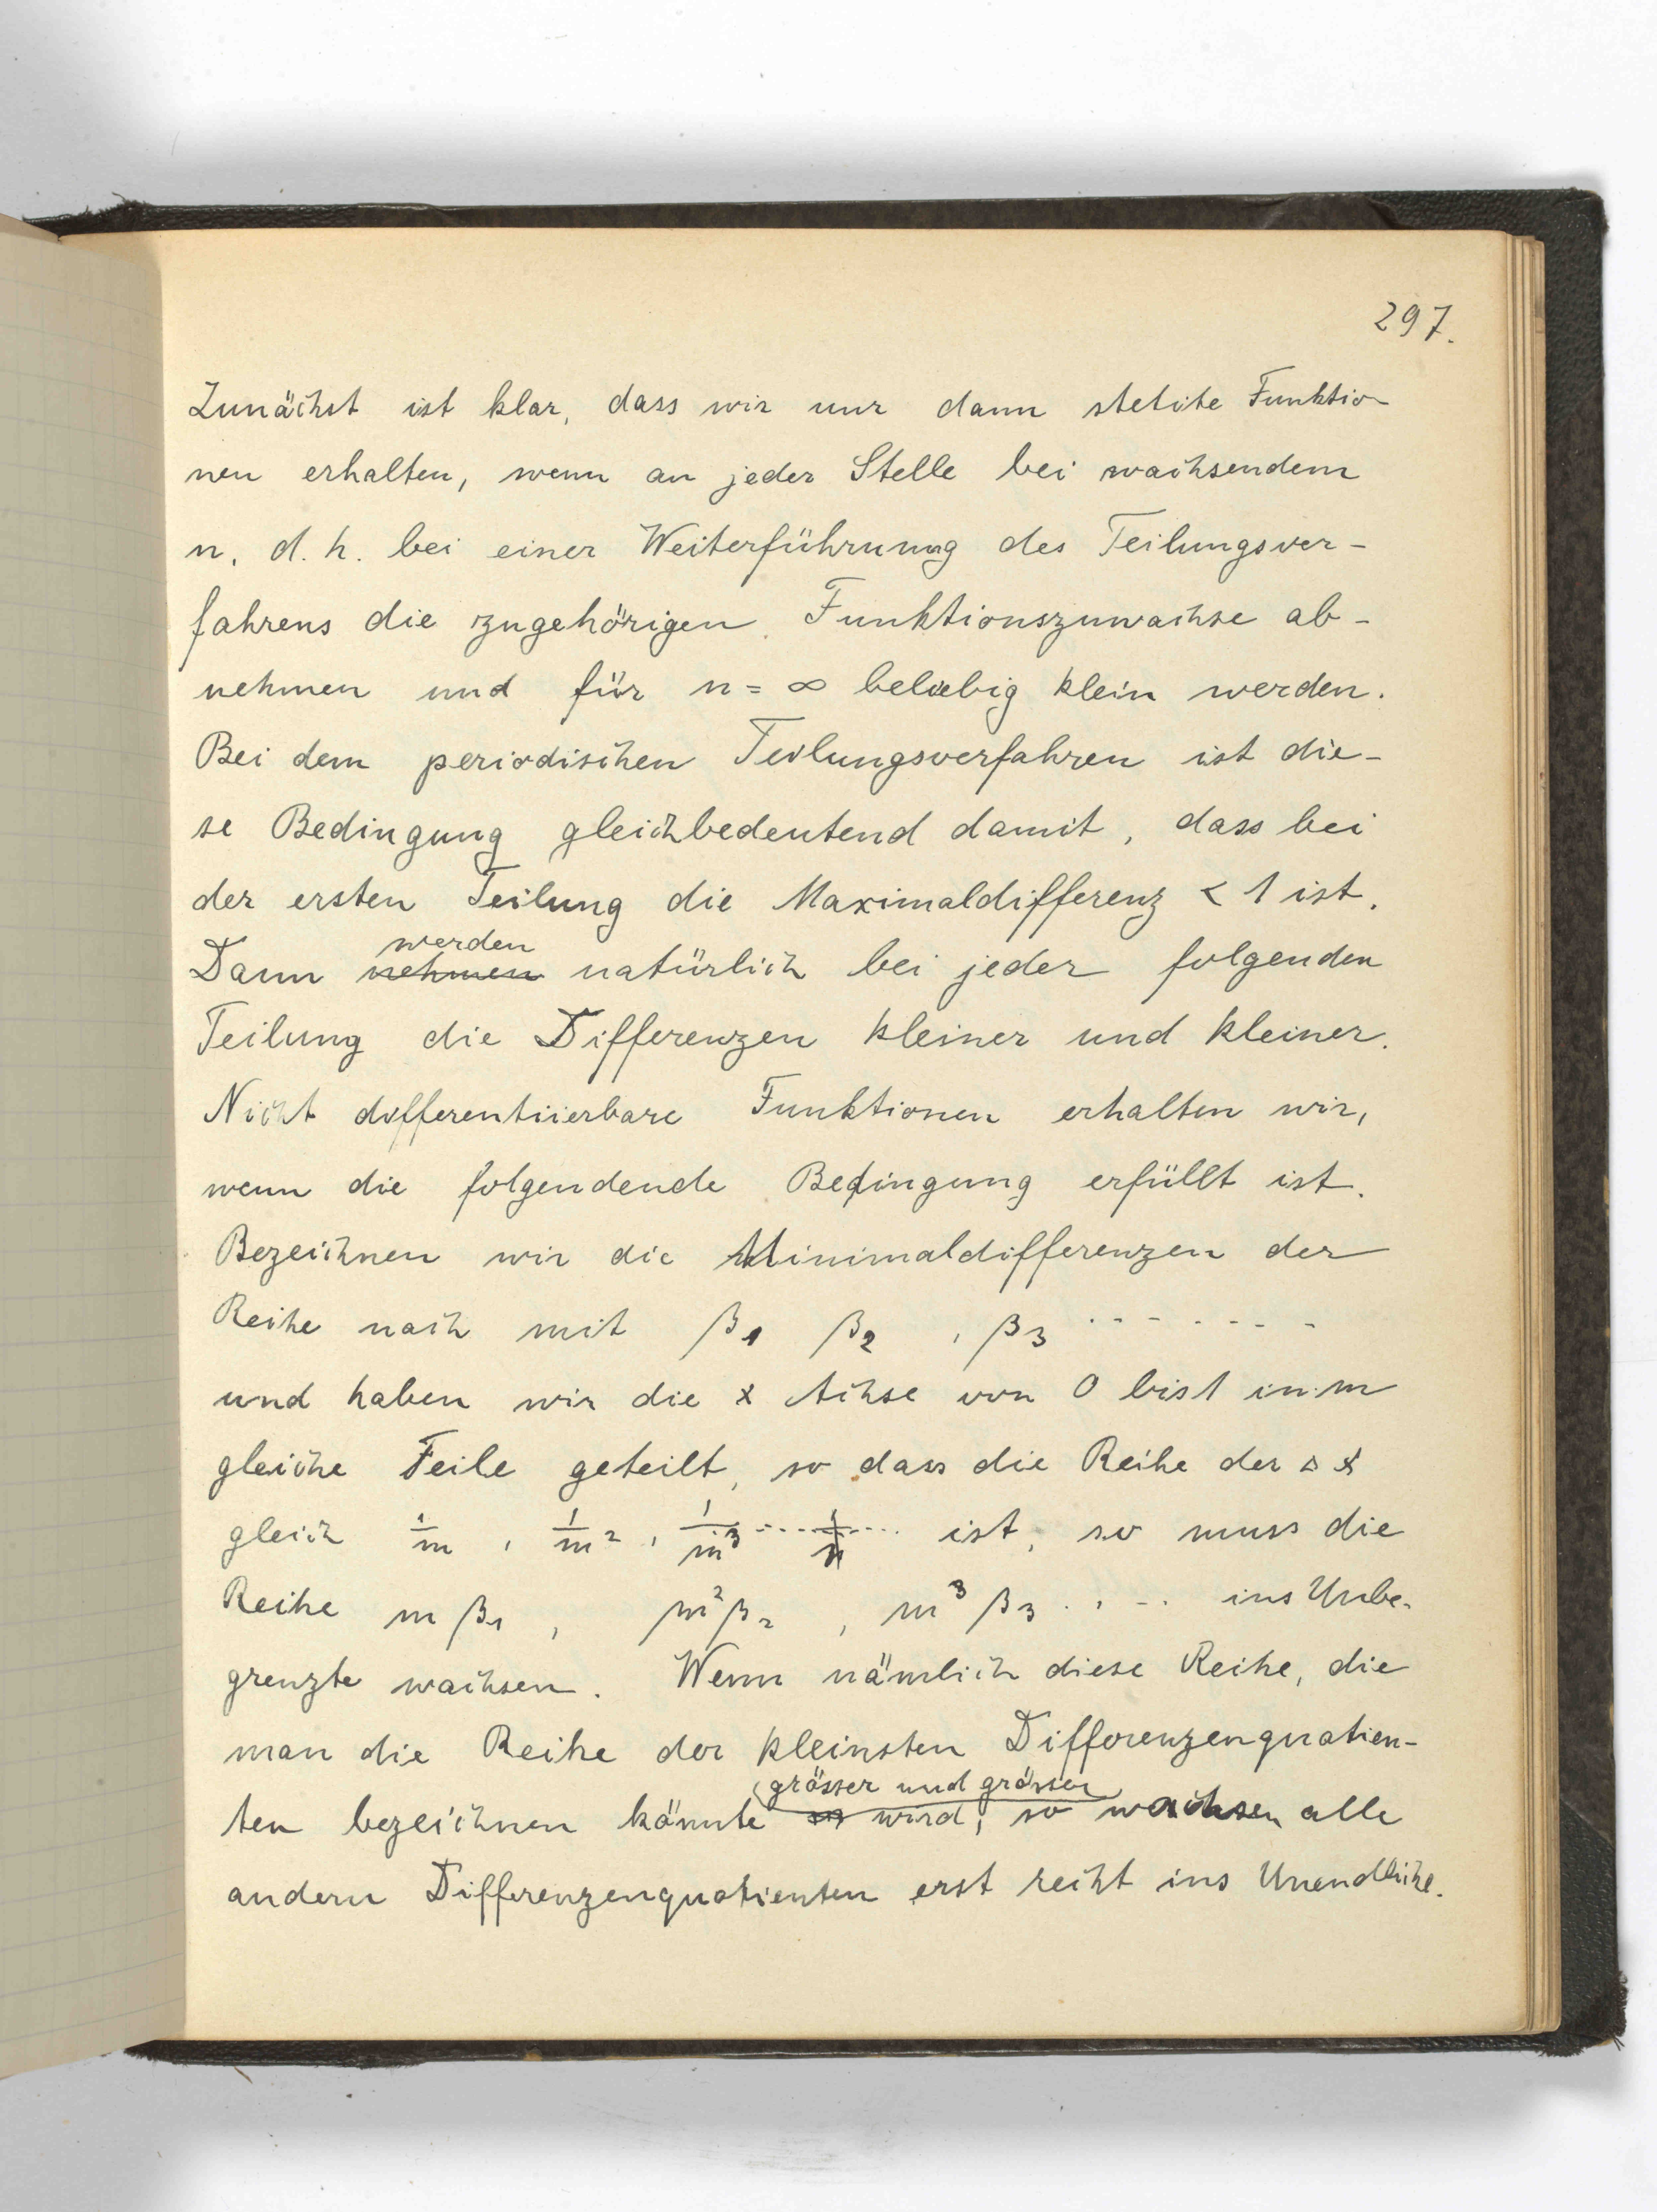 297.
Zunächst ist klar, dass wir nur dann stetite Funktio-
nen erhalten, wenn an jeder Stelle bei wachsendem
n, d. h. bei einer Weiterführunng des Teilungsver-
fahrens die zugehörigen Funktionszuwachse ab-
nehmen und für n = ∞ beliebig klein werden.
Bei dem periodischen Teilungsverfahren ist die-
se Bedingung gleichbedeutend damit, dass bei
der ersten Teilung die Maximaldifferenz < 1 ist.
werden
Dann nehmen natürlich bei jeder folgenden
Teilung die Differenzen kleiner und kleiner.
Nicht differentiierbare Funktionen erhalten wir,
wenn die folgendende Bedingung erfüllt ist.
Bezeichnen wir die Minimaldifferenzen der
Reihe nach mit β₁ β₂ , β₃ . . . . . . . .
und haben wir die x Achse von 0 bis 1 in m
gleiche Teile geteilt, so dass die Reihe der Δ x
gleich 1/m , 1/m² , 1/m³ ..... 1/n ... ist, so muss die
Reihe m β₁ , m² β₂ , m³ β₃ . . . . ins Unbe-
grenzte wachsen. Wenn nämlich diese Reihe, die
man die Reihe der kleinsten Differenzenquotien-
grösser und grösser
ten bezeichnen könnte wird, so wachsen alle
andern Differenzenquotienten erst recht ins Unendliche.